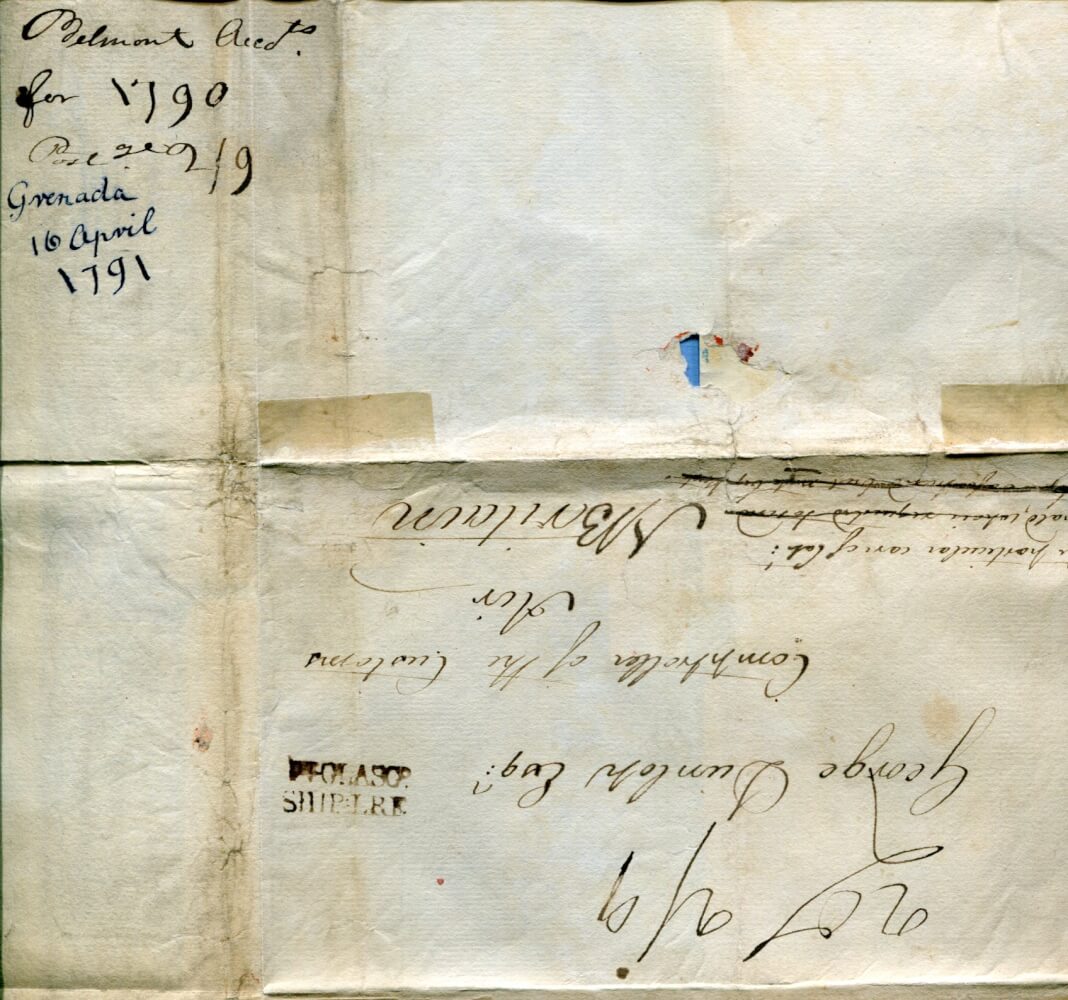 Belmont Accts.
for 1790
Postage 2/9
Grenada
16 April
1791
2/9
George Dunlop Esqr.
Comptroller of the Customs
Air
N Britain
particular care of Capt:
when required to
PT GLASGO
SHIP LRE